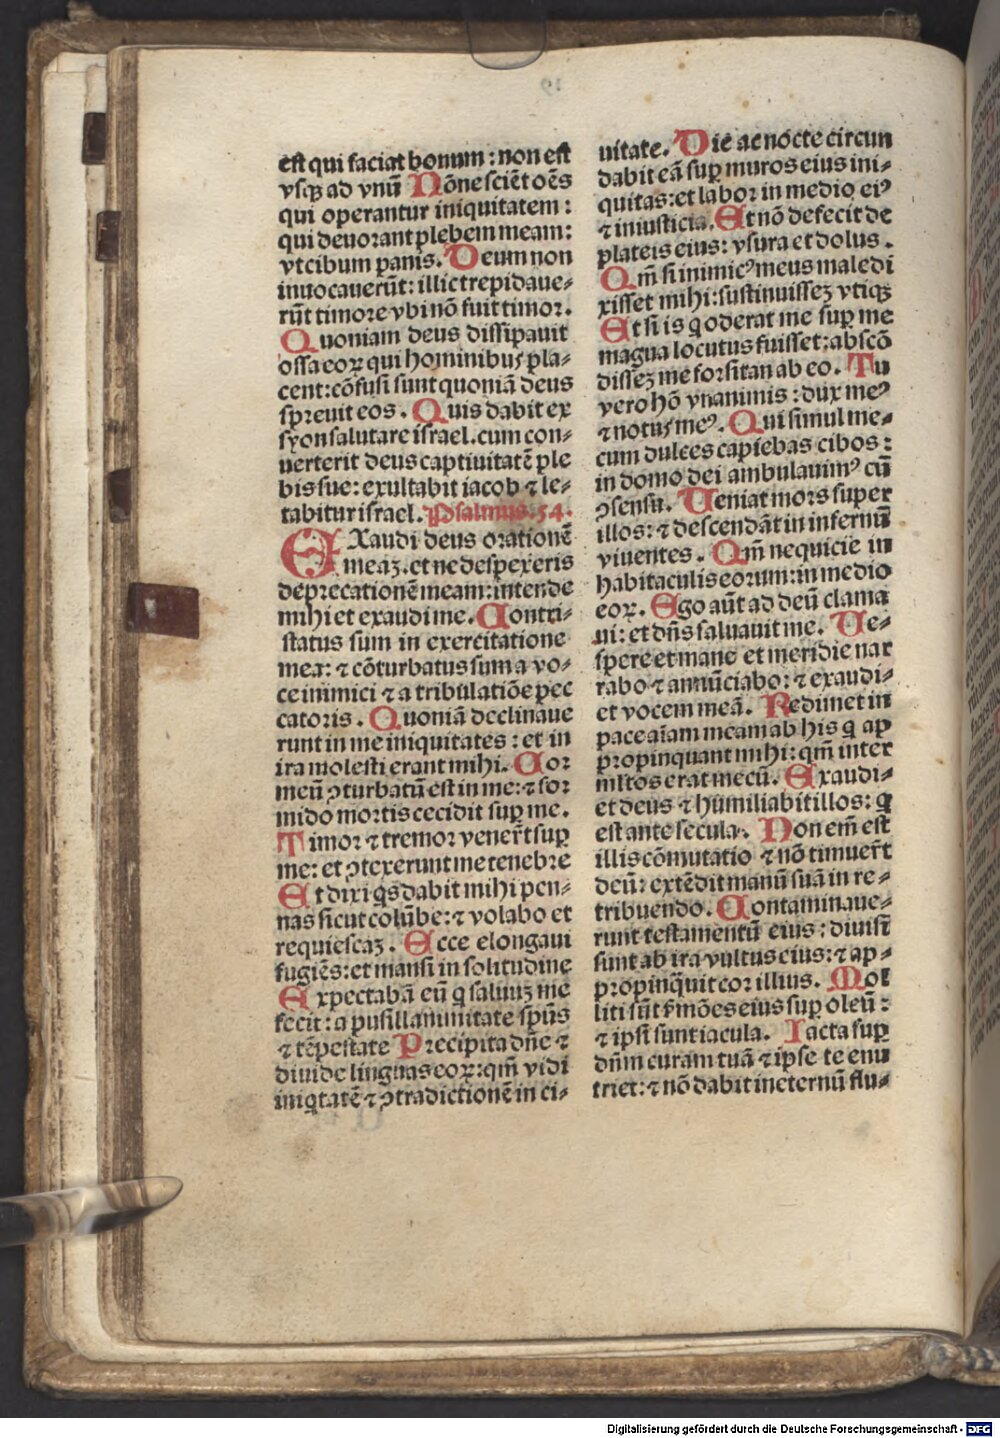 est qui faciat bonum : non est
vsqꝫ ad vnū Nōne sciēt oēs
qui operantur iniquitatem :
qui deuorant plebem meam :
vt cibum panis. Deum non
inuocauerūt : illic trepidaue⸗
rūt timore vbi nō fuit timor.
Quoniam deus dissipauit
ossa eoꝝ qui hominibus pla⸗
cent : cōfusi sunt quoniā deus
spreuit eos . Quis dabit ex
syon salutare israel. cum con⸗
uerterit deus captiuitatē ple
bis sue : exultabit iacob ⁊ le⸗
tabitur israel. Psalmus. 54.
EXaudi deus orationē
meaꝫ. et ne despexeris
deprecationē meam : intende
mihi et exaudi me. Contri⸗
status sum in exercitatione
mea : ⁊ cōturbatus sum a vo⸗
ce inimici ⁊ a tribulatiōe pec
catoris . Quoniā declinaue
runt in me iniquitates : et in
ira molesti erant mihi. Cor
meū ꝯturbatū est in me : ⁊ for
mido mortis cecidit suꝑ me.
Timor ⁊ tremor venerūt suꝑ
me : et ꝯtexerunt me tenebre
Et dixi qͥs dabit mihi pen⸗
nas sicut colūbe : ⁊ volabo et
requiescaꝫ . Ecce elongaui
fugiēs : et mansi in solitudine
Expectabā eū q̇ saluuꝫ me
fecit : a pusillanimitate spūs
⁊ tēpestate Precipita dn̄e ⁊
diuide linguas eoꝝ : qm̄ vidi
iniqͥtatē ⁊ ꝯtradictionē in ci⸗
uitate. Die ac nocte circun
dabit eā suꝑ muros eius ini⸗
quitas : et labor in medio eiꝰ
⁊ iniusticia. Et nō defecit de
plateis eius : vsura et dolus .
Qm̄ si inimicꝰ meus maledi
xisset mihi : sustinuisseꝫ vtiqꝫ
Et si is q̇ oderat me suꝑ me
magna locutus fuisset : abscō
disseꝫ me forsitan ab eo. Tu
vero hō vnanimis : dux meꝰ
⁊ notus meꝰ. Qui simul me⸗
cum dulces capiebas cibos :
in domo dei ambulauimꝰ cū
ꝯsensu. Ueniat mors super
illos : ⁊ descendāt in infernū
viuentes . Qm̄ nequicie in
habitaculis eorum : in medio
eoꝝ. Ego aūt ad deū clama
ui : et dn̄s saluauit me. Ue⸗
spere et mane et meridie nar
rabo ⁊ annūciabo : ⁊ exaudi⸗
et vocem meā. Redimet in
pace aīam meam ab his q̇ aꝑ
propinquant mihi : qm̄ inter
ml̄tos erat mecū. Exaudi⸗
et deus ⁊ humiliabit illos : q̇
est ante secula. Non em̄ est
illis cōmutatio ⁊ nō timuerūt
deū : extēdit manū suā in re⸗
tribuendo. Contaminaue⸗
runt testamentū eius : diuisi
sunt ab ira vultus eius : ⁊ ap⸗
propinq̄uit cor illius. Mol
liti sūt f̄mōes eius suꝑ oleū :
⁊ ipsi sunt iacula. Iacta suꝑ
dn̄m curam tuā ⁊ ipse te enu
triet : ⁊ nō dabit in eternū flu⸗
Digitalisierung gefördert durch die Deutsche Forschungsgemeinschaft - DFG